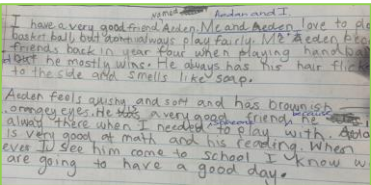 named Aedan and I
I have a very good friend Aeden. Me and Aeden love to
basket ball, but always play fairly. Aeden
friends back in year four when playing
but he mostly wins. He always has his hair
to the side and smells like soap.
Aeden feels quishy and soft and has brownish
orangey eyes. He is a very good friend because he
alway there when I needed to play with.
is very good at math and his reading. When
ever I see him come to school I know
are going to have a good day.